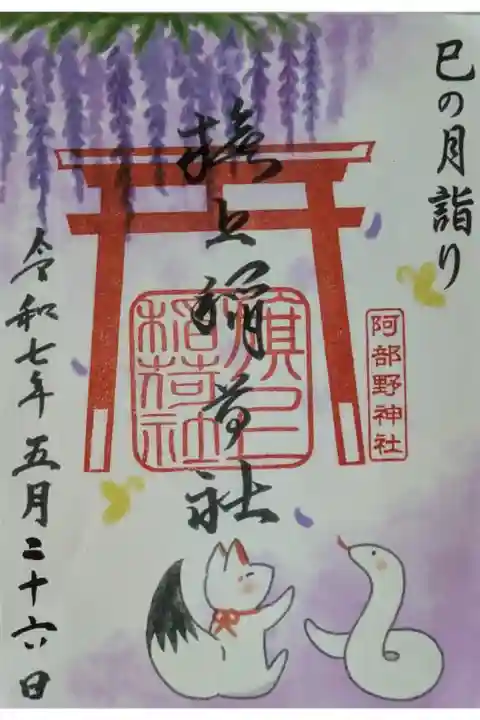 巳の月詣り
阿部野神社
旗上稲荷社
旗上稲荷社
令和七年五月二十六日